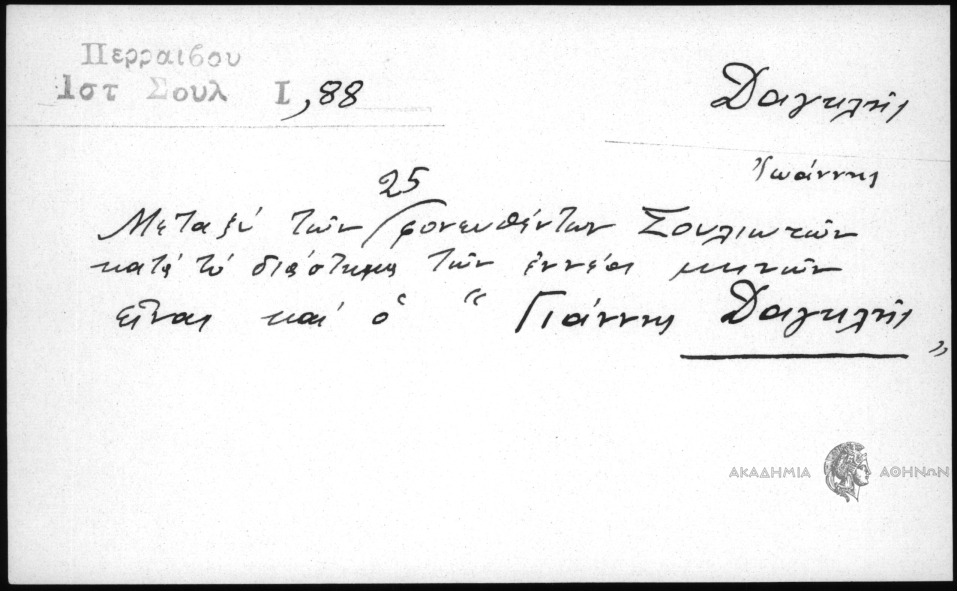 Περραιβου
Ιστ Σουλ Ι, 88
Δαγκλῆς
Ἰωάννης
25
Μεταξύ τῶν φονευθέντων Σουλιωτῶν
κατά τό διάστημα τῶν ἐννέα μηνῶν
εἶναι καί ὁ "Γιάννης Δαγκλῆς"
ΑΚΑΔΗΜΙΑ ΑΘΗΝΩΝ